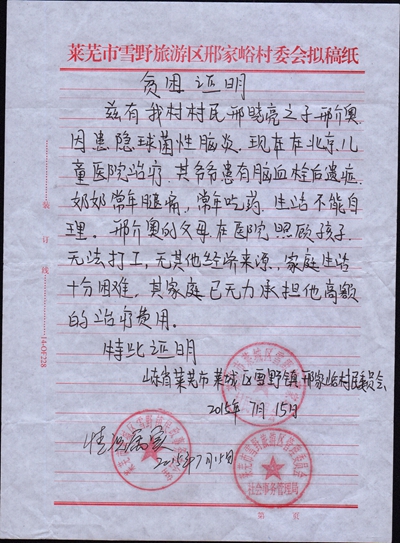 莱芜市雪野旅游区邢家峪村委会拟稿纸
贫困证明
兹有我村村民邢晓亮之子邢介奥
因患隐球菌性脑炎.现在在北京儿
童医院治疗.其爷爷患有脑血栓后遗症.
奶奶常年腿痛,常年吃药.生活不能自
理.邢介奥的父母.在医院照顾孩子.
无法打工,无其他经济来源,家庭生活
十分困难,其家庭已无力承担他高额
的治疗费用.
特此证明
山东省莱芜市莱城区雪野镇邢家峪村民委员会
2015年7月15日
情况属实
2015年7月15日
社会事务管理局
装订线
14-OF228
第 页